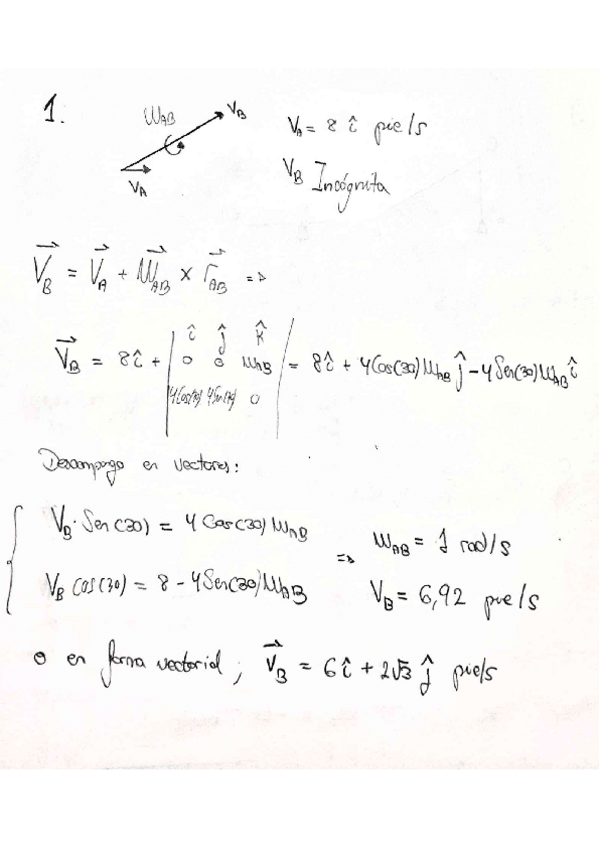 1.
W_AB V_B
V_A
V_A = 8 î pie/s
V_B Incógnita
V_B = V_A + W_AB × r_AB =>
î ĵ k̂
V_B = 8î + | 0 0 W_AB | = 8î + 4 Cos(30) W_AB ĵ - 4 Sen(30) W_AB î
4Cos(30) 4Sen(30) 0
Descompongo en vectores:
V_B · Sen(30) = 4 Cos(30) W_AB
V_B Cos(30) = 8 - 4 Sen(30) W_AB
=> W_AB = 1 rad/s
V_B = 6,92 pie/s
o en forma vectorial; V_B = 6î + 2√3 ĵ pie/s